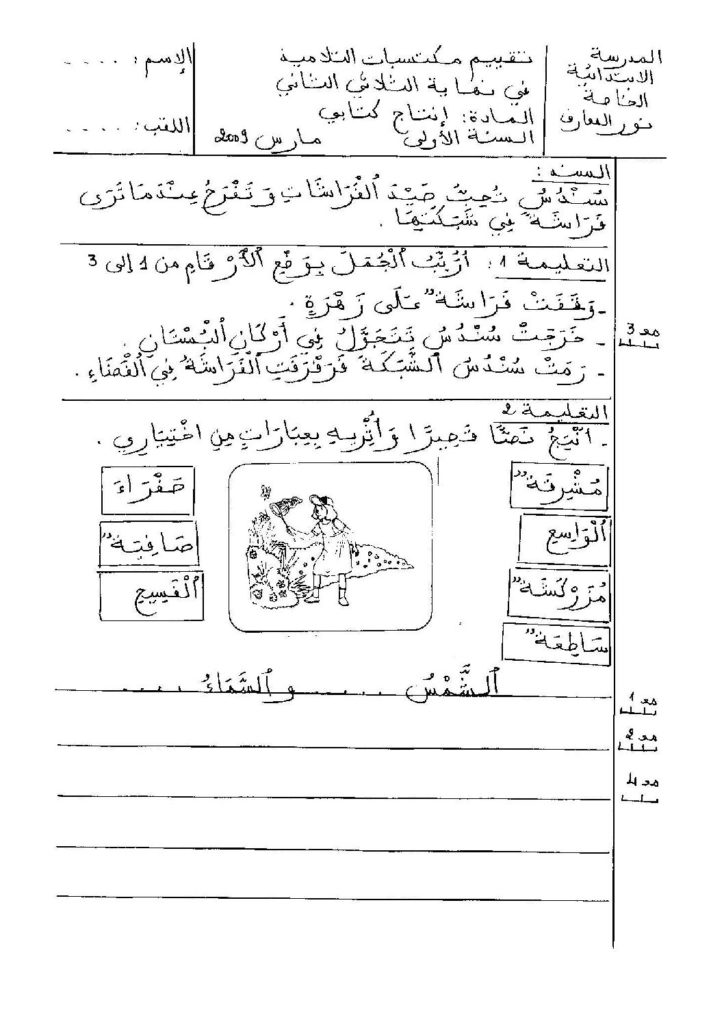 المدرسة
الابتدائية
الخاصة
نور المعارف
تقييم مكتسبات التلاميذ
في نهاية الثلاثي الثاني
المادة: إنتاج كتابي
السنة الأولى مارس 2009
الإسم: . . . .
اللقب: . . . .
السند:
سُنْدُسُ تُحِبُّ صَيْدَ ٱلْفَرَاشَاتِ وَ تَفْرَحُ عِنْدَمَا تَرَى
فَرَاشَةً فِي شَبَكَتِهَا .
التعليمة 1: أُرَتِّبُ ٱلْجُمَلَ بِوَضْعِ ٱلْأَرْقَامِ من 1 إلى 3
- وَقَفَتْ فَرَاشَةٌ عَلَى زَهْرَةٍ .
- خَرَجَتْ سُنْدُسُ تَتَجَوَّلُ فِي أَرْكَانِ ٱلْبُسْتَانِ .
- رَمَتْ سُنْدُسُ ٱلشَّبَكَةَ فَرَفْرَفَتِ ٱلْفَرَاشَةُ فِي ٱلْفَضَاءِ .
مع 3
التعليمة 2
- أُنْتِجُ نَصًّا قَصِيرًا وَ أُثْرِيهِ بِعِبَارَاتٍ مِنِ اخْتِيَارِي .
مُشْرِقَةٌ
ٱلْوَاسِعِ
مُزَرْكَشَةٌ
سَاطِعَةٌ
صَفْرَاءَ
صَافِيَةٌ
ٱلْفَسِيحِ
ٱلشَّمْسُ . . . . . و ٱلسَّمَاءُ . . . . .
مع 1
مع 2
مع 4